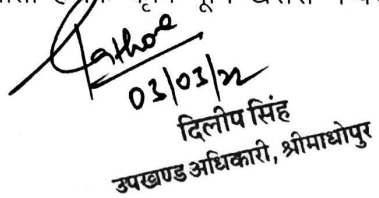 Rathore
03/03/22
दिलीप सिंह
उपखण्ड अधिकारी, श्रीमाधोपुर